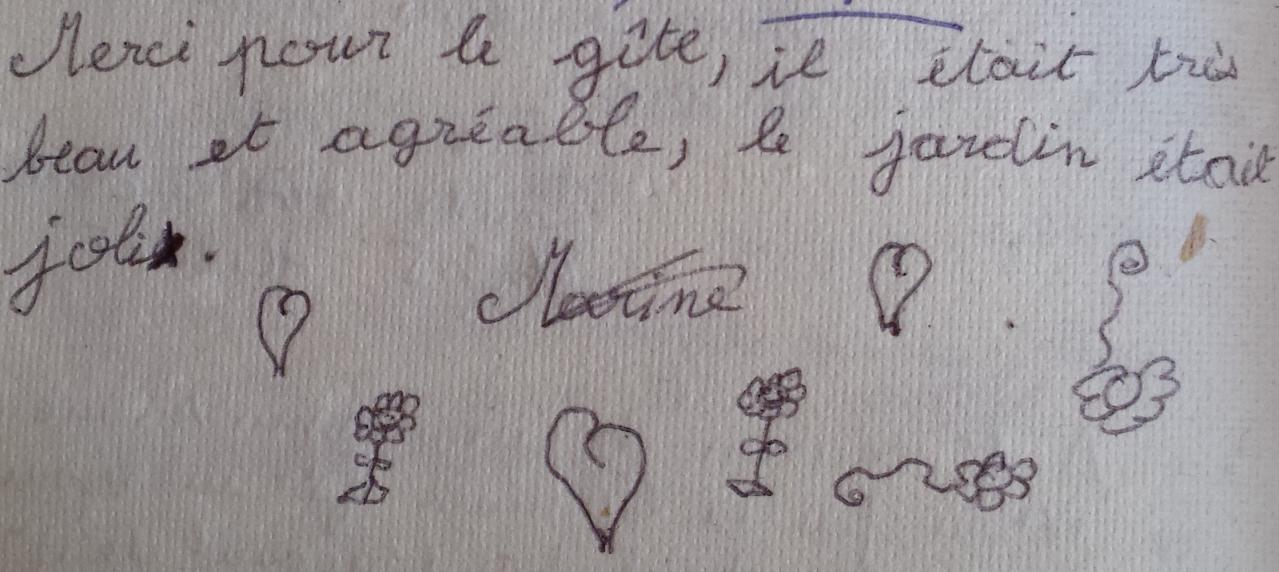 Merci pour le gîte, il était très
beau et agréable, le jardin était
joli.
Marine